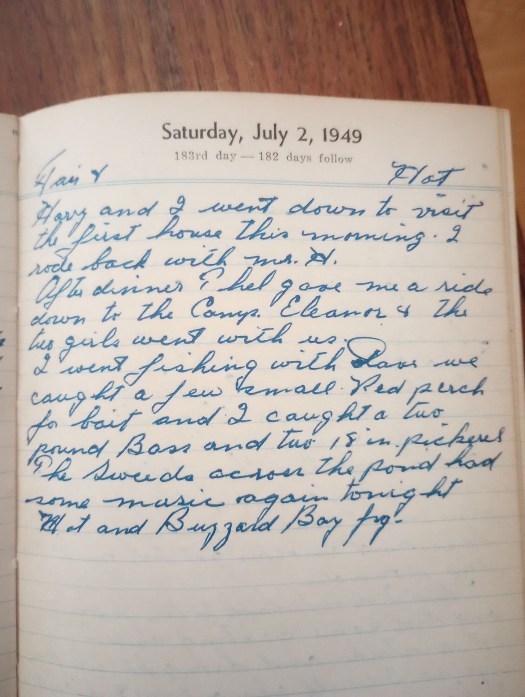 Saturday, July 2, 1949
183rd day — 182 days follow
Fair & Hot
Harry and I went down to visit
the first house this morning. I
rode back with Mr. H.
After dinner Phel gave me a ride
down to the Camp. Eleanor & the
two girls went with us.
I went fishing with Dave we
caught a few small Red perch
for bait and I caught a two
pound Bass and two 18 in. pickerel
The Sweeds across the pond had
some music again tonight
Hot and Buzzard Bay fog.